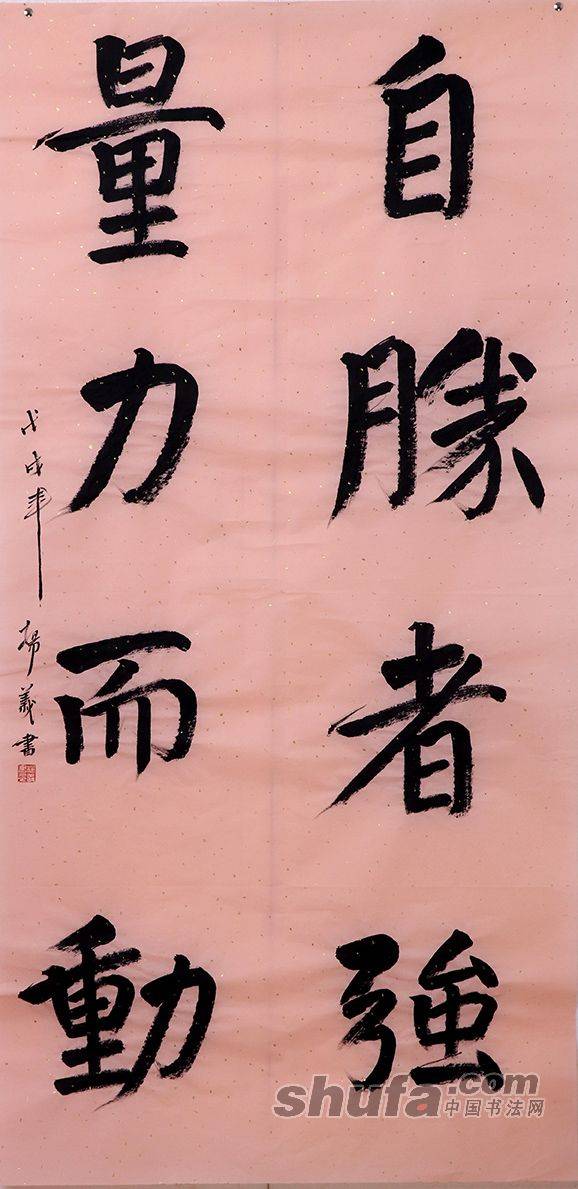 自勝者強
量力而動
戊戌年 楊義書
shufa.com
中国书法网